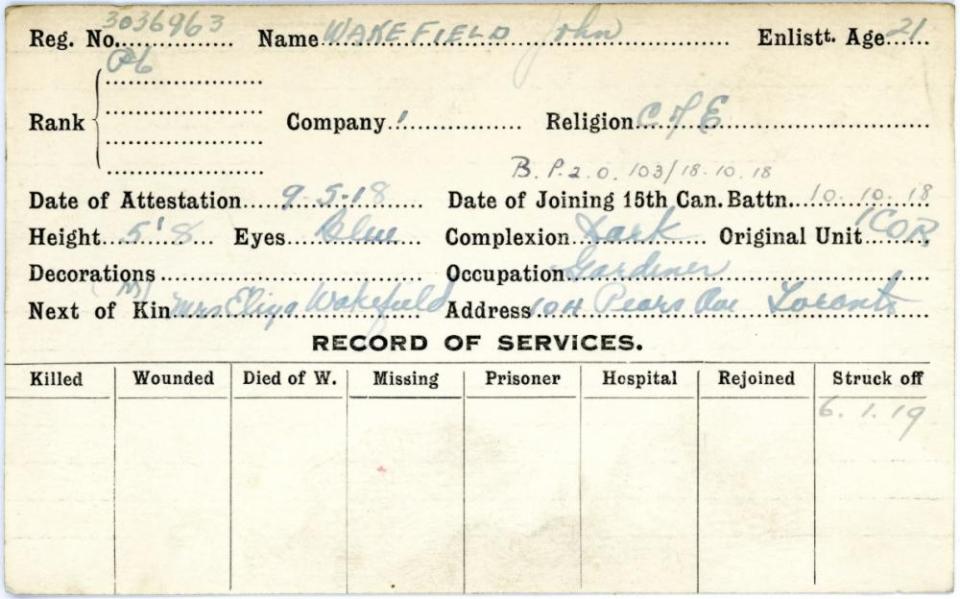 Reg. No. 3036963 Name WAKEFIELD John Enlistt. Age 21
Pte
Rank Company 1 Religion C of E
B.P.2.O. 103/18.10.18
Date of Attestation 9-5-18 Date of Joining 15th Can. Battn. 10.10.18
Height 5'8 Eyes Blue Complexion Dark Original Unit 1COR
Decorations Occupation Gardiner
(M)
Next of Kin Mrs Eliza Wakefield Address 104 Pears Ave Toronto
RECORD OF SERVICES.
Killed Wounded Died of W. Missing Prisoner Hospital Rejoined Struck off
6.1.19